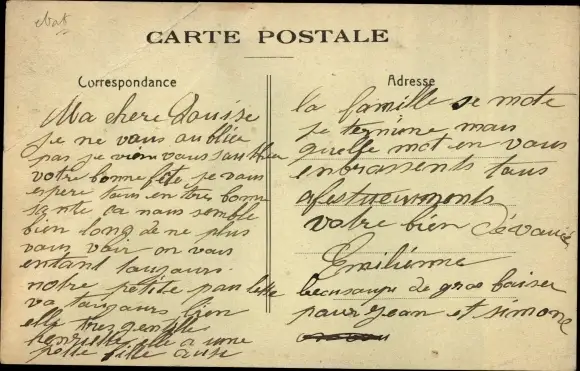 ebat
CARTE POSTALE
Correspondance
Ma chere Louise
je ne vous oublier
pas je vien vous souhter
votre bonne fête je vous
espere tous en tres bonne
santé ca nous semble
bien long de ne plus
vous voir on vous
entant toujours.
notre petite
va toujours bien
elle tres gentille
henriette elle a une
petite fille ausi
Adresse
la famille se mote
je termine mais
quelle mot en vous
enbrassents tous
afestueusments
votre bien Dévoué
Emilienne
beaucoups de gros baiser
pour jean et simone